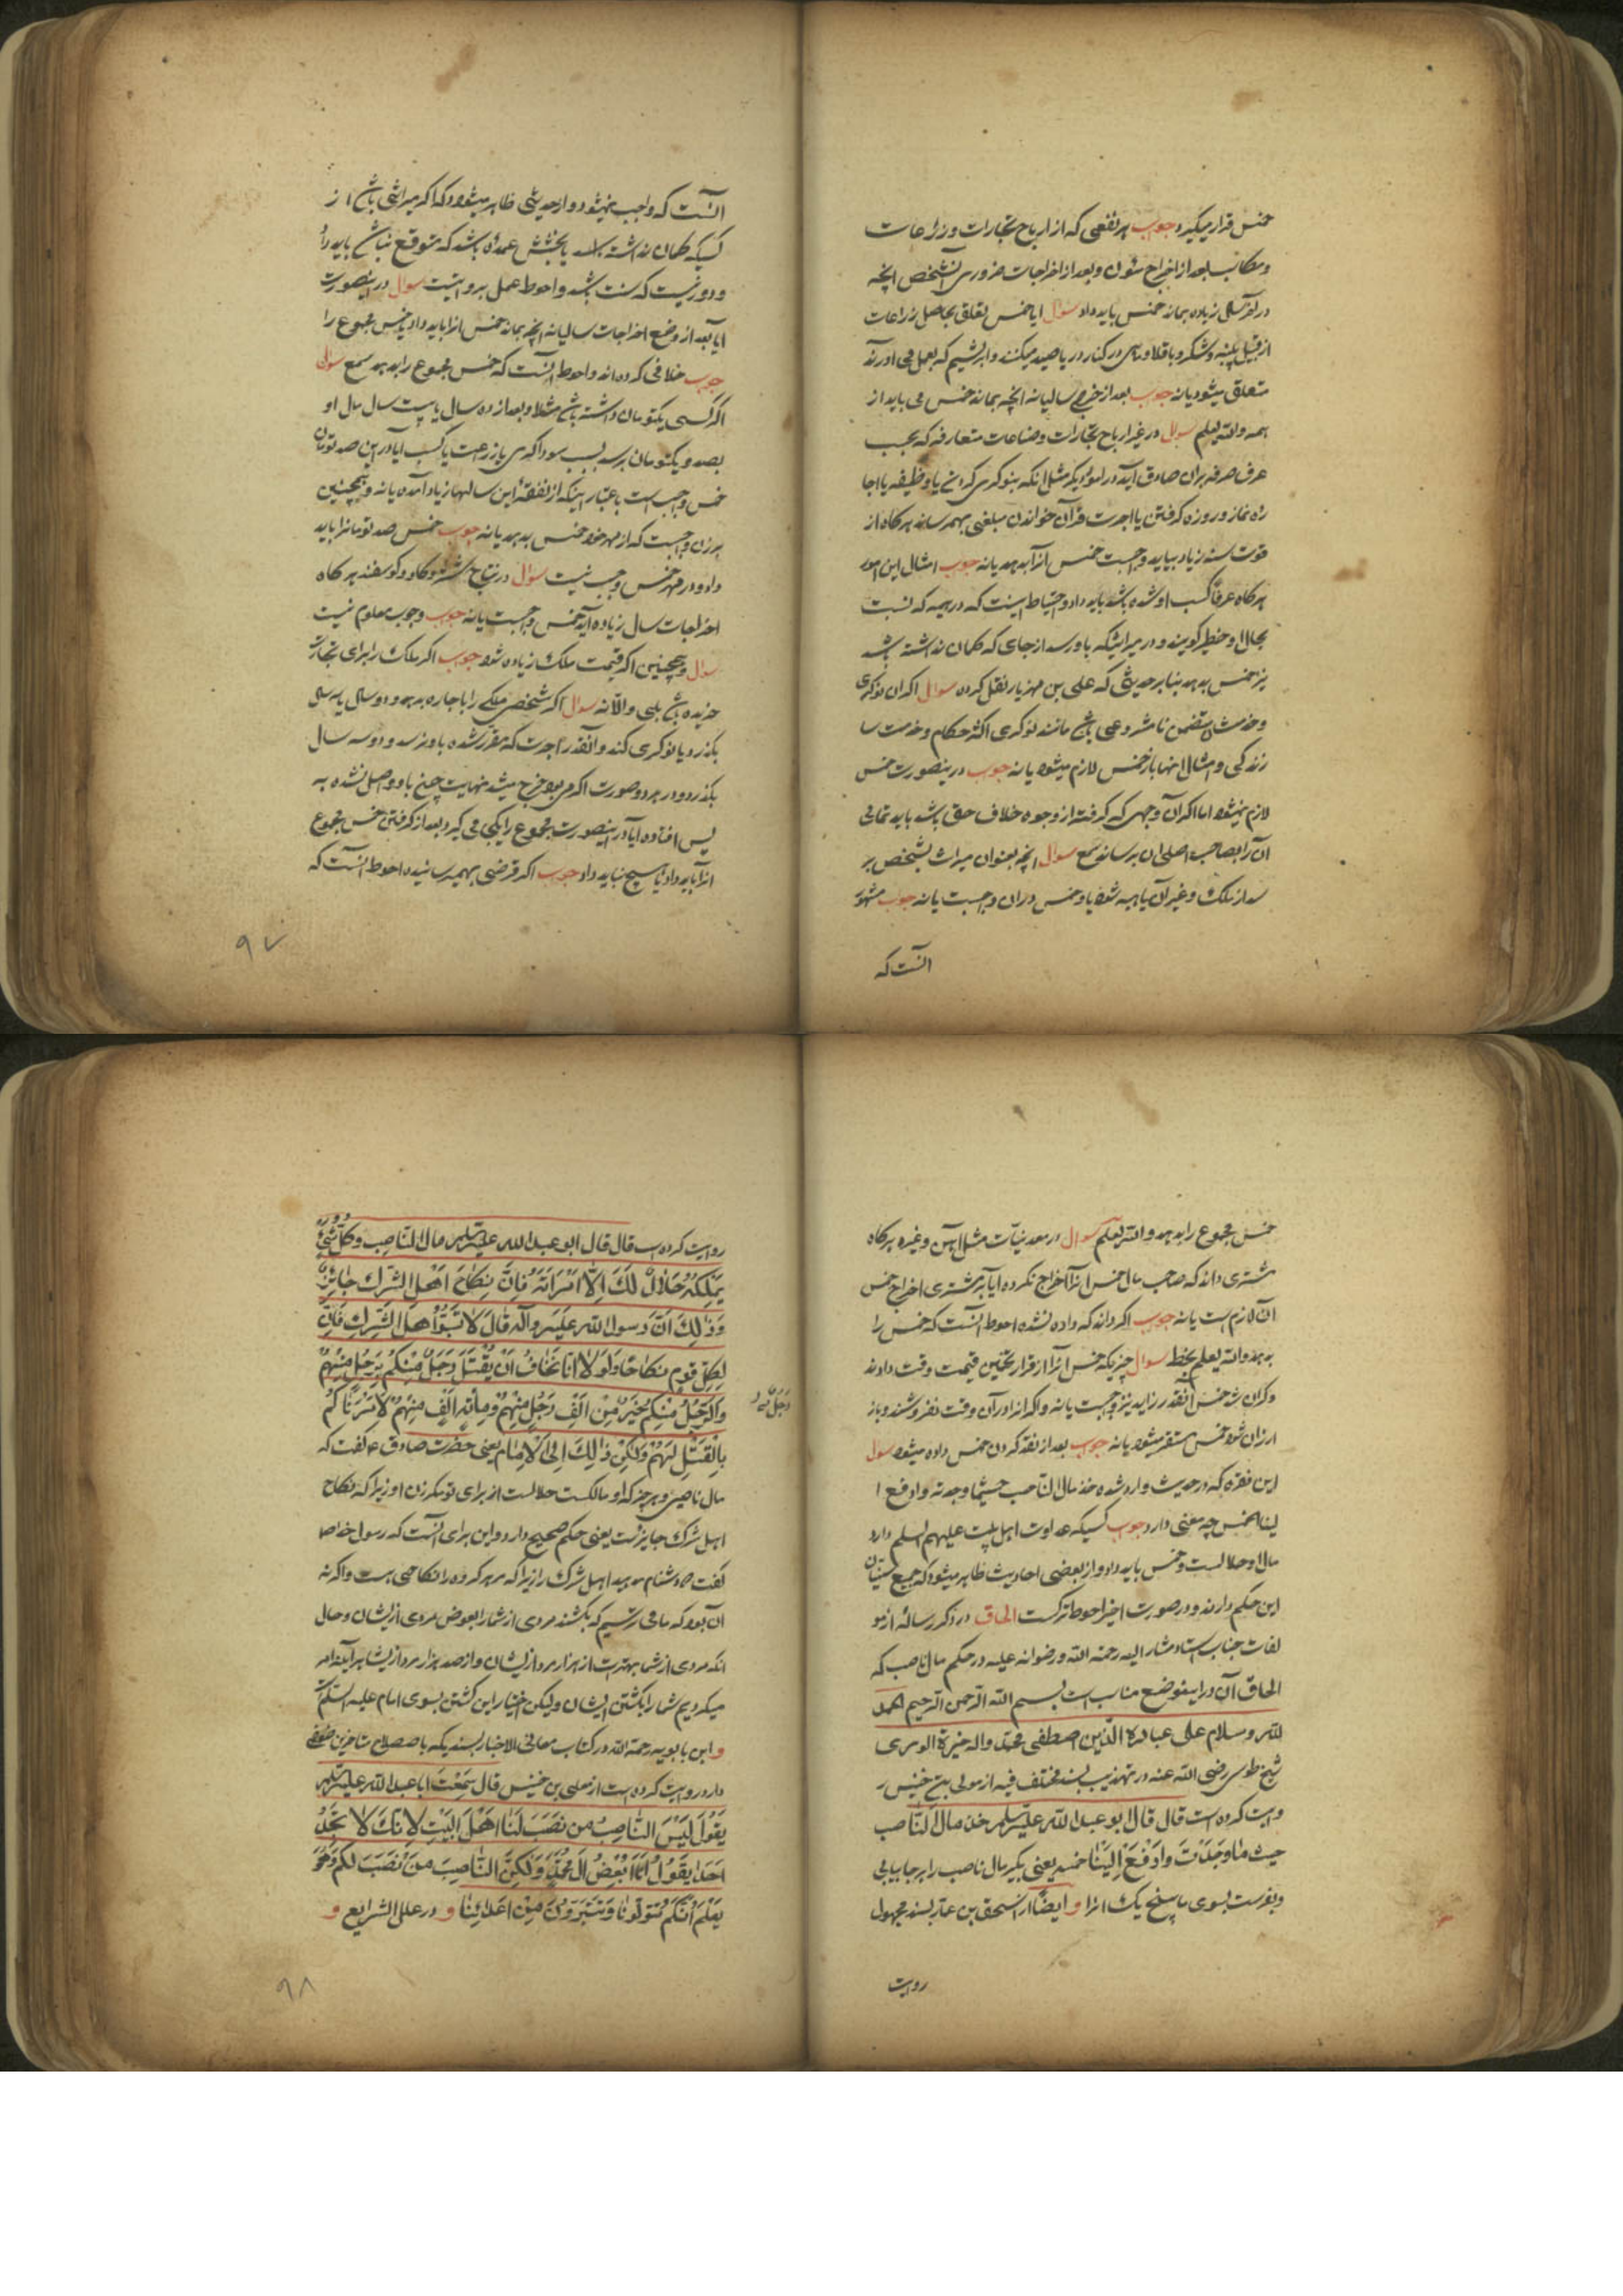 خمس قرار میگیرد جواب هر نفعی که از ارباح تجارات و زراعات
و مکاسب بعد از اخراج مئون و بعد از اخراجات ضروری آنشخص آنچه
در آخر سال زیاده بماند خمس باید داد سوال آیا خمس تعلق بحاصل زراعات
از قبیل پنبه و شکر و باقلا و ماهی در کنار دریا صید میکنند و ابریشم که بعمل می آورند
متعلق میشود یا نه جواب بعد از خرج سالیانه آنچه بماند خمس می باید از
همه والله یعلم سوال در غیر ارباح تجارات و صناعات متعارفه که بحسب
عرف حرفه بر آن صادق آید در امور دیگر مثل آنکه بنوکری کردن یا وظیفه یا اجا
ره نماز و روزه گرفتن یا اجرت قرآن خواندن مبلغی بهمرساند هرگاه از
قوت سنه زیاد بیاید واجبست خمس آنرا بدهد یا نه جواب امثال این امور
هرگاه عرفاً کسب او شده باشد باید داد و احتیاط اینست که در همه که نسبت
بحال او خطیر گویند و در میراثیکه باو رسد از جای که گمان نداشته باشد
نیز خمس بدهد بنابر حدیثی که علی بن مهزیار نقل کرده سوال اگر آن نوکری
و خدمت متضمن نامشروعی باشد مانند نوکری اکثر حکام و خدمت سا
زندگی و امثال اینها باز خمس لازم میشود یا نه جواب درینصورت خمس
لازم نمیشود اما اگر آن وجهی که گرفته از وجوه خلاف حق باشد باید تمامی
آن را بصاحب اصلی آن برسانند سمع سوال آنچه بعنوان میراث بشخص بر
سد از ملک و غیر آن یا هبه شود باو خمس در آن واجبست یا نه جواب مشهور
آنست که
آنست که واجب نمیشود و از حدیثی ظاهر میشود که اگر میراثی باشد از
کسیکه گمان نداشته باشد یا بخشش عمده باشد که متوقع نباشد باید داد
و دور نیست که سنت باشد و احوط عمل بروایت سوال درینصورت
آیا بعد از وضع اخراجات سالیانه آنچه بماند خمس آنرا باید داد یا خمس مجموع را
جواب خلافی کرده اند و احوط آنست که خمس مجموع را بدهد سمع سوال
اگر کسی یکتومان داشته باشد مثلا و بعد از ده سال یا بیست سال مال او
بصد و یکتومان برسد بسبب سوداگری یا زراعت یا کسب آیا در این صد تومان
خمس واجب است باعتبار اینکه از نفقه این سالها زیاد آمده یا نه و همچنین
بر زن واجبست که از مهر خود خمس بدهد یا نه جواب خمس صد تومانرا باید
داد و در مهر خمس واجب نیست سوال در نتاج شتر و گاو و گوسفند هرگاه
اخراجات سال زیاده آید خمس واجبست یا نه جواب وجوب معلوم نیست
سوال و همچنین اگر قیمت ملک زیاده شود جواب اگر ملک را برای تجارت
خریده باشد بلی والا نه سوال اگر شخصی ملکی را باجاره بدهد و دو سال یا سه سال
بگذرد یا نوکری کند و آنقدر اجرت که مقرر شده باو نرسد و دو سه سال
بگذرد و در هر دو صورت اگر میبود خرج میشد نهایت چیزی باو واصل نشده
پس افتاده آیا درینصورت مجموع را یکجا می گیرد بعد از گرفتن خمس مجموع
آنرا باید داد یا هیچ نباید داد جواب اگر قرضی بهمرسانیده احوط آنست که
۹۷
خمس مجموع را بدهد والله یعلم سوال در معدنیات مثل آهن و غیره هرگاه
مشتری داند که صاحب مال خمس آنرا اخراج نکرده آیا بر مشتری اخراج خمس
آن لازم است یا نه جواب اگر داند که داده نشده احوط آنست که خمس را
بدهد والله یعلم بخط سوال چیزیکه خمس آنرا از قرار تخمین قیمت وقت دادند
و گران شد خمس آنقدر زاید نیز واجبست یا نه و اگر آنرا در آن وقت نفروشند و باز
ارزان شود خمس مستقر میشود یا نه جواب بعد از نقد کردن خمس داده میشود سوال
این فقره که در حدیث وارد شده خذ مال الناصب حیثما وجدته وادفع ا
لینا الخمس چه معنی دارد جواب کسیکه عداوت اهل بیت علیهم السلام دارد
مال او حلالست و خمس باید داد و از بعضی احادیث ظاهر میشود که جمیع سنیان
این حکم دارند و در صورت اخیر احوط ترکست الحاق در ذکر رساله از مو
لفات جناب استاد مشار الیه رحمة الله و رضوانه علیه در حکم مال ناصب که
الحاق آن در اینموضع مناسب است بسم الله الرحمن الرحیم الحمد
لله و سلام علی عباده الذین اصطفی محمد و آله خیرة الوری
شیخ طوسی رضی الله عنه در تهذیب بسند مختلف فیه از معلی بن خنیس ر
وایت کرده است قال قال ابو عبد الله علیه السلام خذ مال الناصب
حیث ما وجدت وادفع الینا خمسه یعنی بگیر مال ناصب را هر جا بیابی
و بفرست بسوی ما پنج یک آنرا و ایضاً از اسحق بن عمار بسند مجهول
روایت
روایت کرده است قال قال ابو عبد الله علیه السلام مال الناصب و کل شیء
یملکه حلال لک الا امرأته فان نکاح اهل الشرک جائز
و ذلک ان رسول الله علیه و آله قال لا تسبوا اهل الشرک فان
لکل قوم نکاحا و لولا انا نخاف ان یقتل رجل منکم برجل منهم
و الرجل منکم خیر من الف رجل منهم و مائة الف منهم لامرناکم
رجل
بالقتل لهم ولکن ذلک الی الامام یعنی حضرت صادق ع گفت که
مال ناصبی و هر چیز که او مالکست حلالست از برای تو مگر زن او زیرا که نکاح
اهل شرک جایزست یعنی حکم صحیح دارد و این برای آنست که رسول خدا ص
گفت که دشنام مدهید اهل شرک را زیرا که هر گروه را نکاحی هست و اگر نه
آن بود که ما می ترسیم که بکشند مردی از شما را بعوض مردی از ایشان و حال
آنکه مردی از شما بهتر است از هزار مرد از ایشان و از صد هزار مرد از ایشان هر آینه امر
میکردیم شما را بکشتن ایشان ولیکن اختیار این کشتن بسوی امام علیه السلام است
و ابن بابویه رحمة الله در کتاب معانی الاخبار بسندیکه باصطلاح متاخرین ضعفی
دارد روایت کرده است از معلی بن خنیس قال سمعت ابا عبد الله علیه السلام
یقول لیس الناصب من نصب لنا اهل البیت لانک لا تجد
احدا یقول انا ابغض آل محمد ولکن الناصب من نصب لکم و هو
یعلم انکم تتولونا و تتبرؤن من اعدائنا و در علل الشرایع و
۹۸